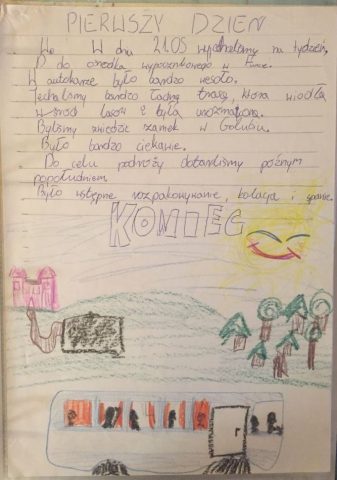 PIERWSZY DZIEŃ
We W dniu 21.09 wyjechaliśmy na tydzień
do ośrodka wypoczynkowego w
W autokarze było bardzo wesoło.
Jechaliśmy bardzo ładną trasą, która wiodła
wśród lasów i była urozmaicona.
Byliśmy zwiedzić zamek w Golubiu.
Było bardzo ciekawie.
Do celu podróży dotarliśmy późnym
popołudniem.
Było wstępne rozpakowywanie, kolacja i spanie.
KONIEC